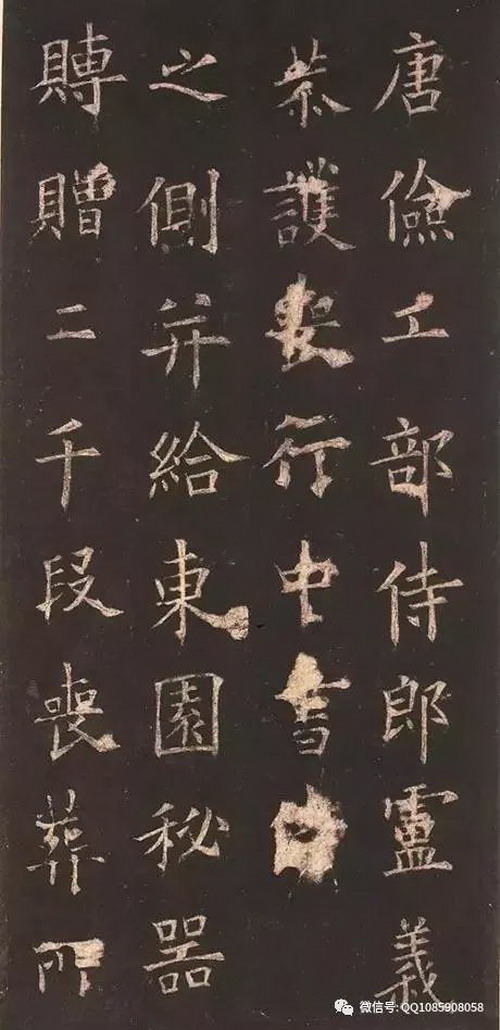 唐儉工部侍郎盧義
恭護喪行中書
之側并給東園秘器
賻贈二千段喪葬所
微信号: QQ1085908058